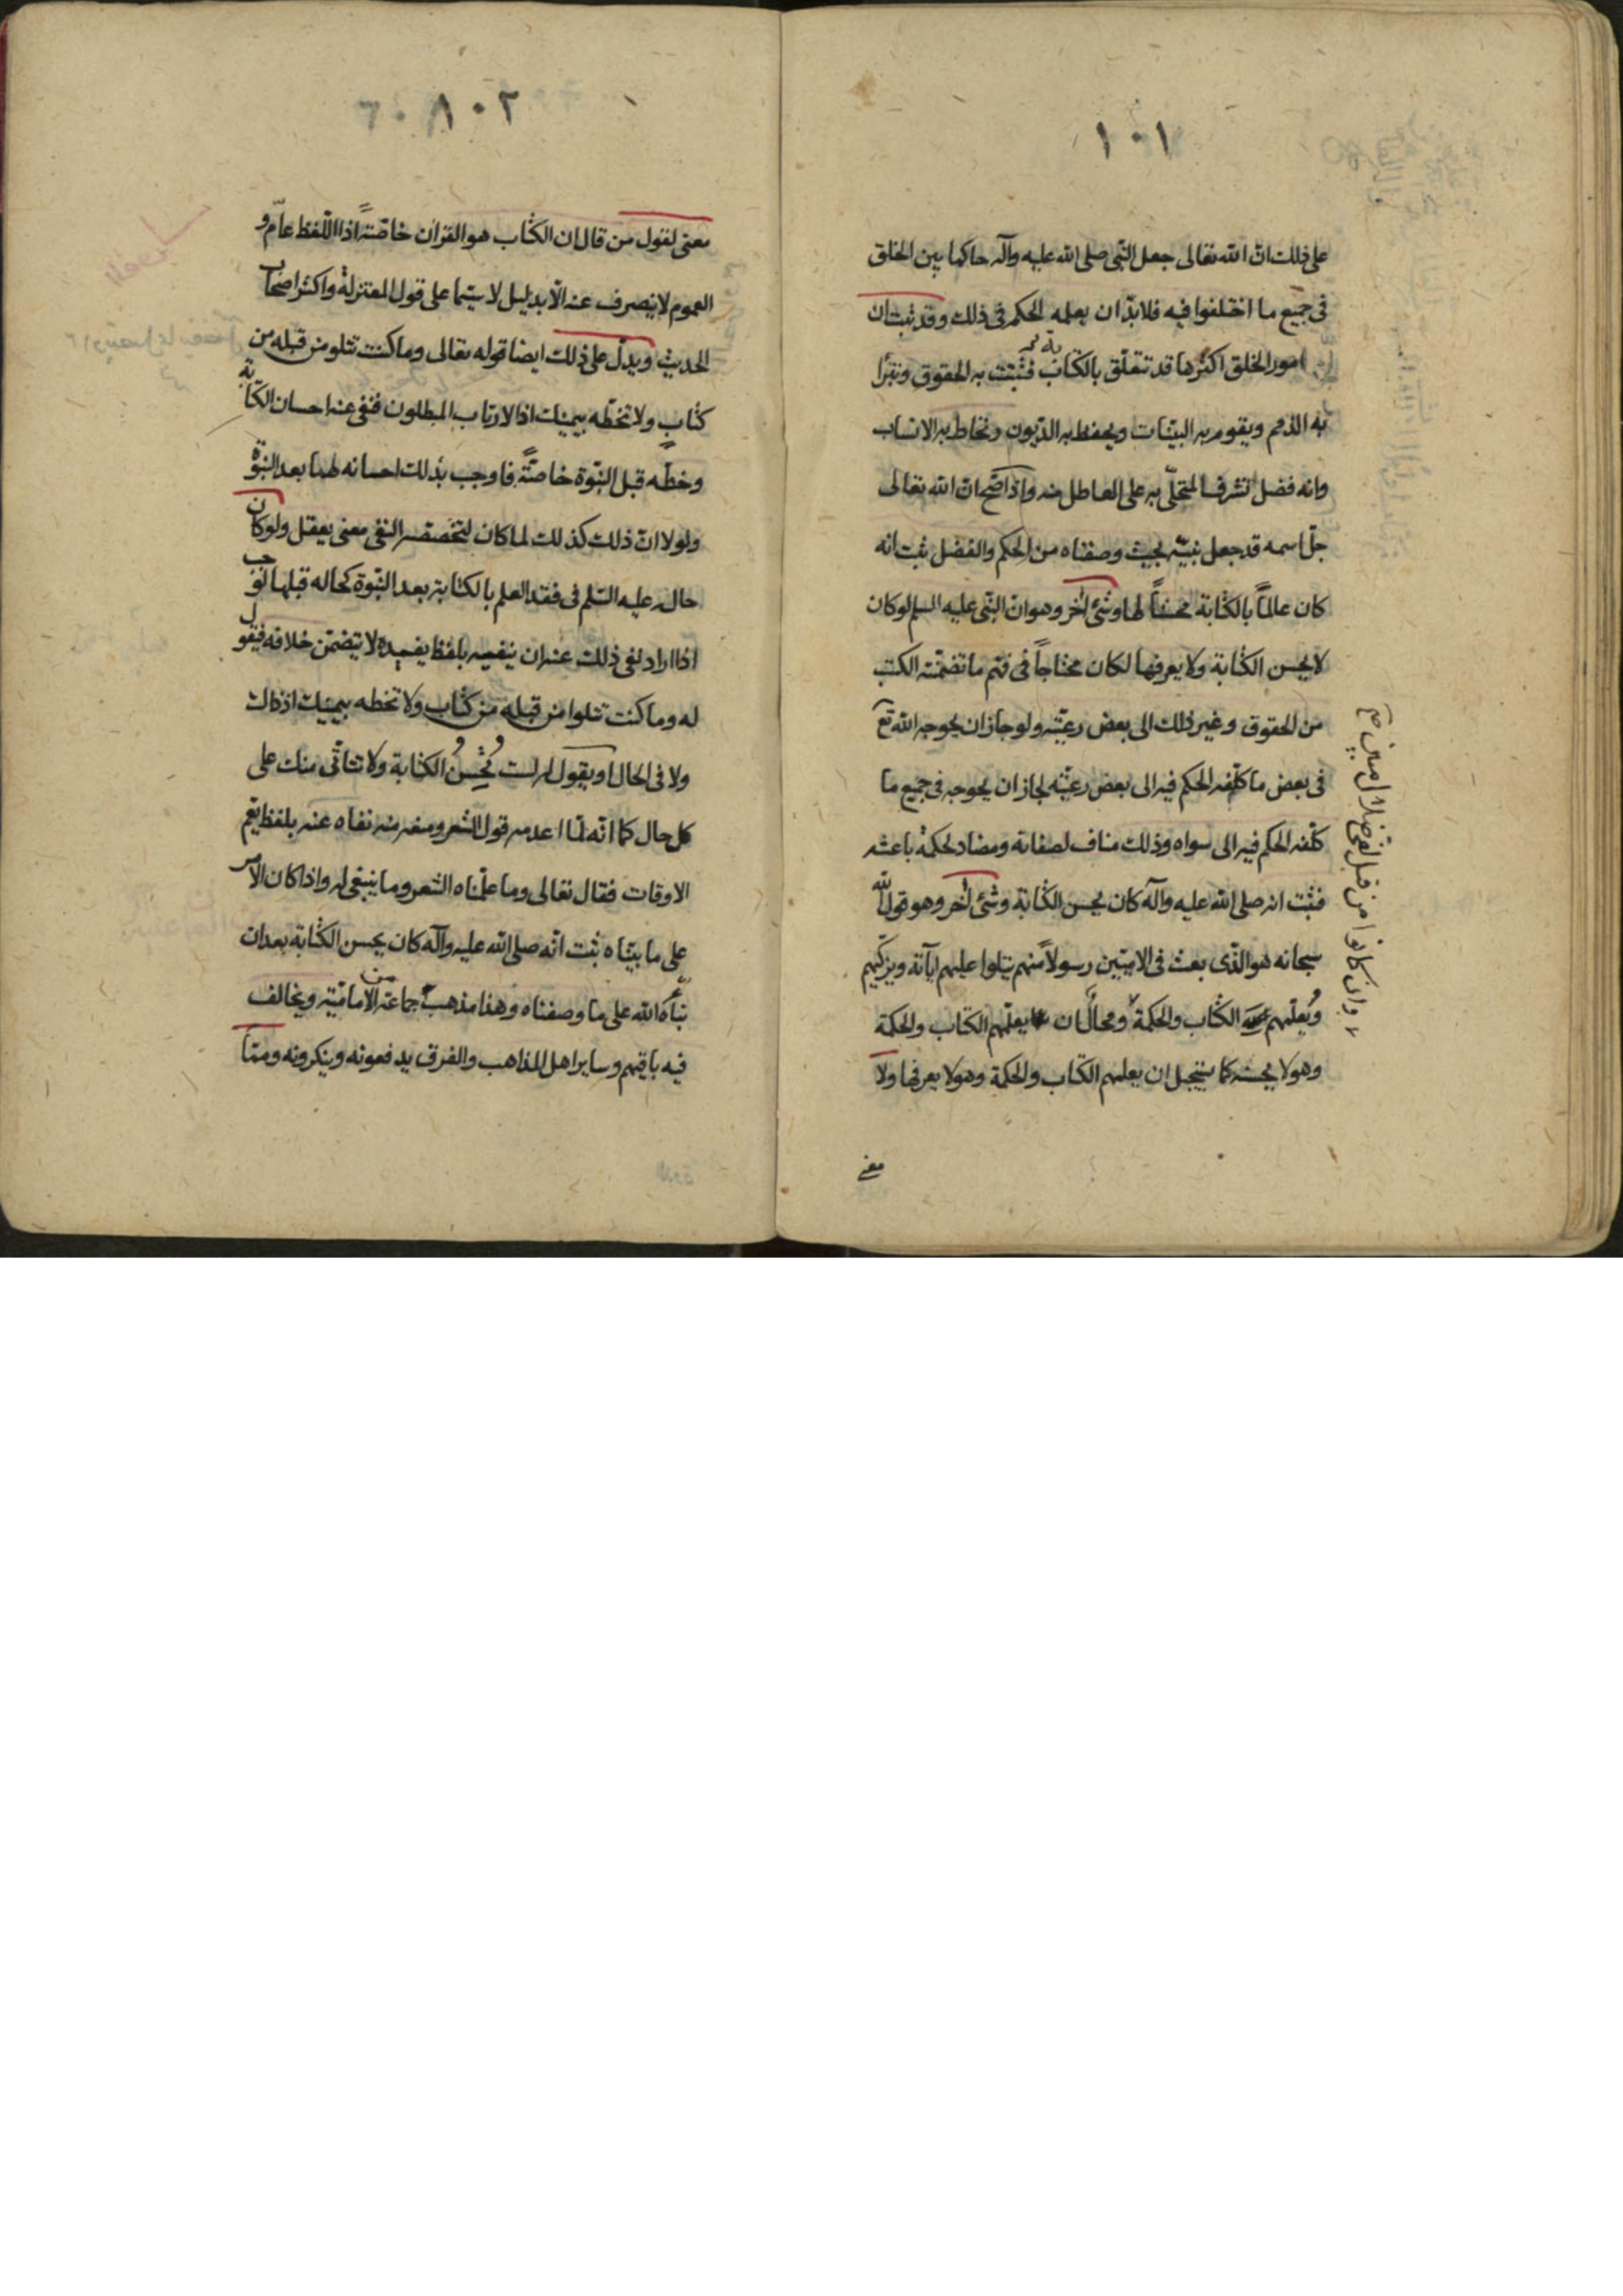 ١٠١
على ذلك ان الله تعالى جعل النبى صلى الله عليه وآله حاكما بين الخلق
فى جميع ما اختلفوا فيه فلا بدّ ان يعلمه الحكم فى ذلك وقد ثبت ان
امور الخلق اكثرها قد تتعلّق بالكتابة فتثبت به الحقوق وتبرا
به الذمم ويقوم به البيّنات ويحفظ به الديون وتحاط به الانساب
وانه فضل تشرف المتحلّى به على العاطل منه واذا صحّ انّ الله تعالى
جلّ اسمه قد جعل نبيّه بحيث وصفناه من الحكم والفضل ثبت انه
كان عالماً بالكتابة محسناً لها وشئ آخر وهو ان النبى عليه السلم لو كان
لا يحسن الكتابة ولا يعرفها لكان محتاجاً فى فهم ما تضمّنته الكتب
من الحقوق وغير ذلك الى بعض رعيّته ولو جاز ان يحوجه الله تع
فى بعض ما كلّفه الحكم فيه الى بعض رعيّته لجاز ان يحوجه فى جميع ما
كلّفه الحكم فيه الى سواه وذلك مناف لصفاته ومضاد لحكمة باعثه
فثبت انه صلى الله عليه وآله كان يحسن الكتابة وشئ آخر وهو قول الله
سبحانه هو الّذى بعث فى الاميّين رسولاً منهم يتلوا عليهم آياته ويزكّيهم
ويُعلّمهم الكتاب والحكمة ومحال ان يعلّمهم الكتاب والحكمة
وهو لا يحسنه كما يستحيل ان يعلمهم الكتاب والحكمة وهو لا يعرفها ولا
معنى
وان كانوا من قبل لفى ضلال مبين صح
١٠٢
معنى لقول من قال ان الكتاب هو القرآن خاصّةً اذا اللّفظ عامّ و
العموم لا ينصرف عنه الاّ بدليل لا سيّما على قول المعتزلة واكثر اصحاب
الحديث ويدلّ على ذلك ايضا قوله تعالى وما كنت تتلو من قبله من
كتاب ولا تخطّه بيمينك اذا لارتاب المبطلون فنفى عنه احسان الكتابة
وخطّه قبل النبّوة خاصّةً فاوجب بذلك احسانه لها بعد النبوّة
ولولا انّ ذلك كذلك لما كان لتخصصه النفى معنى يعقل ولو كان
حاله عليه السّلم فى فقد العلم بالكتابة بعد النبّوة كحاله قبلها لوجب
اذا اراد نفى ذلك عنه ان ينفيه بلفظ يفيده لا يتضمّن خلافه فيقول
له وما كنت تتلوا من قبله من كتاب ولا تخطه بيمينك اذ ذاك
ولا فى الحال او يقول له لست تُحْسِنُ الكتابة ولا تتأتّى منك على
كل حال كما انّه لمّا اعدمه قول الشعر ومنعه منه نفاه عنه بلفظ يعّم
الاوقات فقال تعالى وما علّمناه الشعر وما ينبغى له واذا كان الامر
على ما بيّنّاه ثبت انّه صلى الله عليه وآله كان يحسن الكتابة بعد ان
نبّأه الله على ما وصفناه وهذا مذهب جماعة من الاماميّة ويخالف
فيه باقيهم وساير اهل المذاهب والفرق يدفعونه وينكرونه وممّا